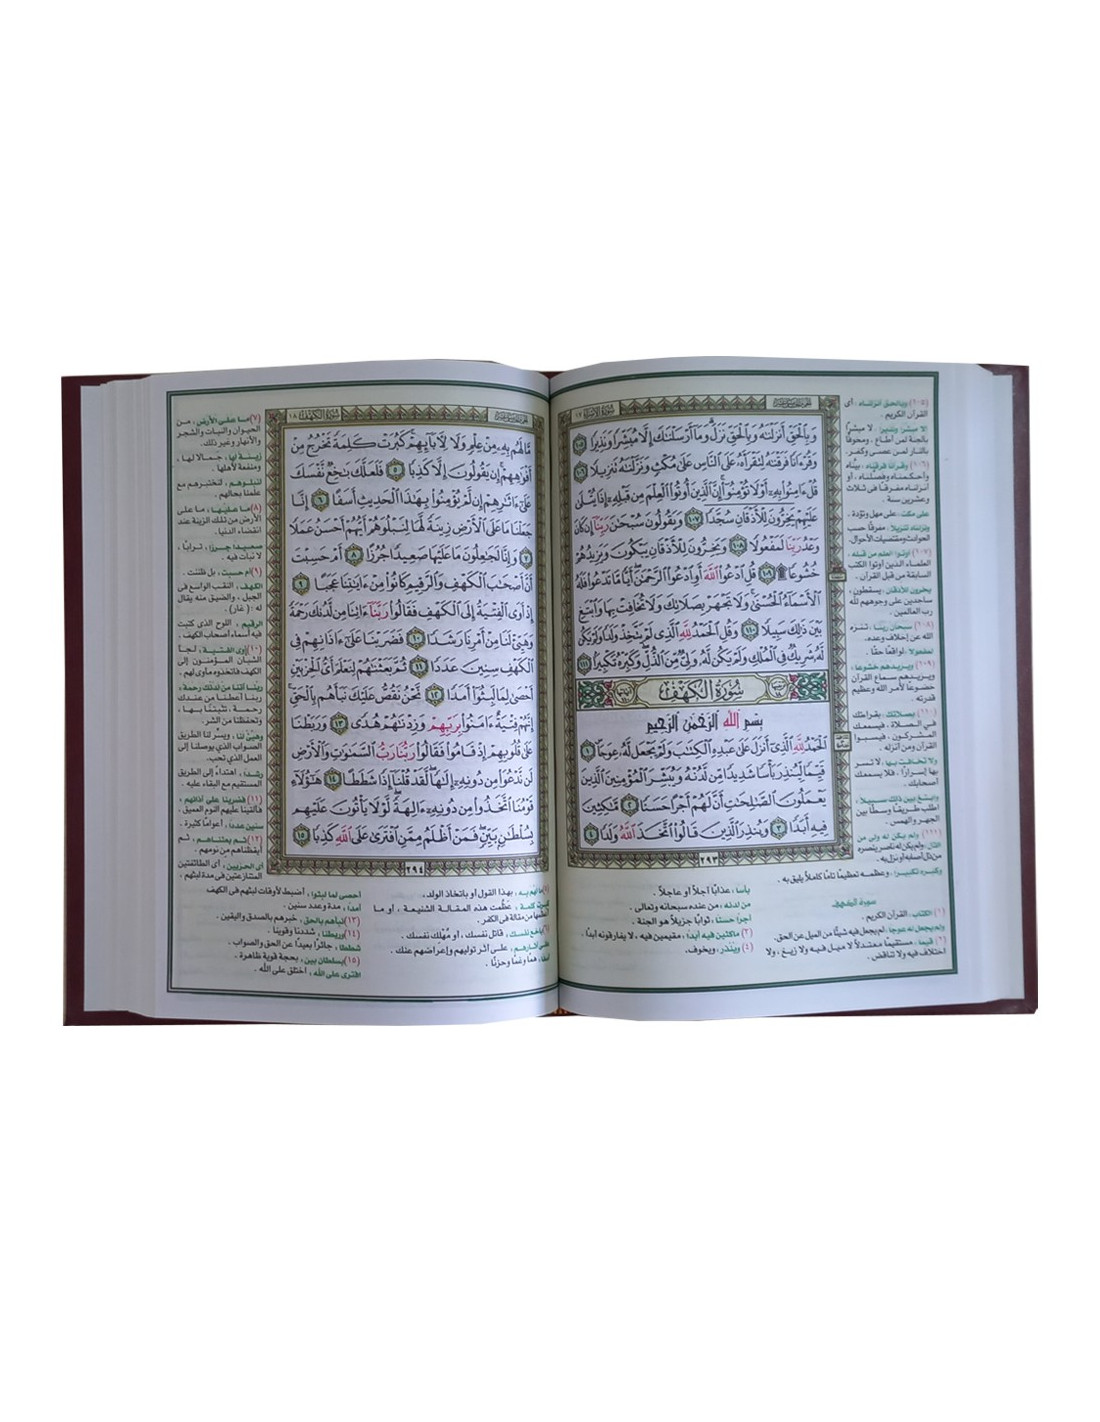 سورة الإسراء ١٧
وَبِالْحَقِّ أَنزَلْنَٰهُ وَبِالْحَقِّ نَزَلَ وَمَآ أَرْسَلْنَٰكَ إِلَّا مُبَشِّرًا وَنَذِيرًا ١٠٥
وَقُرْءَانًا فَرَقْنَٰهُ لِتَقْرَأَهُۥ عَلَى النَّاسِ عَلَىٰ مُكْثٍ وَنَزَّلْنَٰهُ تَنزِيلًا ١٠٦
قُلْ ءَامِنُوا۟ بِهِۦٓ أَوْ لَا تُؤْمِنُوٓا۟ إِنَّ الَّذِينَ أُوتُوا۟ الْعِلْمَ مِن قَبْلِهِۦٓ إِذَا يُتْلَىٰ
عَلَيْهِمْ يَخِرُّونَ لِلْأَذْقَانِ سُجَّدًا ١٠٧ وَيَقُولُونَ سُبْحَٰنَ رَبِّنَآ إِن كَانَ
وَعْدُ رَبِّنَا لَمَفْعُولًا ١٠٨ وَيَخِرُّونَ لِلْأَذْقَانِ يَبْكُونَ وَيَزِيدُهُمْ
خُشُوعًا ۩ ١٠٩ قُلِ ادْعُوا۟ اللَّهَ أَوِ ادْعُوا۟ الرَّحْمَٰنَ أَيًّا مَّا تَدْعُوا۟ فَلَهُ
الْأَسْمَآءُ الْحُسْنَىٰ وَلَا تَجْهَرْ بِصَلَاتِكَ وَلَا تُخَافِتْ بِهَا وَابْتَغِ
بَيْنَ ذَٰلِكَ سَبِيلًا ١١٠ وَقُلِ الْحَمْدُ لِلَّهِ الَّذِى لَمْ يَتَّخِذْ وَلَدًا وَلَمْ يَكُن
لَّهُۥ شَرِيكٌ فِى الْمُلْكِ وَلَمْ يَكُن لَّهُۥ وَلِىٌّ مِّنَ الذُّلِّ وَكَبِّرْهُ تَكْبِيرًا ١١١
سُورَةُ الْكَهْفِ
بِسْمِ اللَّهِ الرَّحْمَٰنِ الرَّحِيمِ
الْحَمْدُ لِلَّهِ الَّذِىٓ أَنزَلَ عَلَىٰ عَبْدِهِ الْكِتَٰبَ وَلَمْ يَجْعَل لَّهُۥ عِوَجَا ١
قَيِّمًا لِّيُنذِرَ بَأْسًا شَدِيدًا مِّن لَّدُنْهُ وَيُبَشِّرَ الْمُؤْمِنِينَ الَّذِينَ
يَعْمَلُونَ الصَّٰلِحَٰتِ أَنَّ لَهُمْ أَجْرًا حَسَنًا ٢ مَّٰكِثِينَ
فِيهِ أَبَدًا ٣ وَيُنذِرَ الَّذِينَ قَالُوا۟ اتَّخَذَ اللَّهُ وَلَدًا ٤
٢٩٣
(١٠٥) وبالحق أنزلناه ، أى
القرآن الكريم .
إلا مبشرًا ونذيرًا ، لا مبشرًا
بالجنة لمن أطاع ، ومخوفًا
بالنار لمن عصى وكفر .
(١٠٦) وقرآنًا فرقناه ، بيَّناه
وأحكمناه وفصَّلناه ، أو
أنزلناه مفرقًا فى ثلاث
وعشرين سنة .
على مكث ، على مهل وتؤدة .
ونزلناه تنزيلا ، مفرقًا حسب
الحوادث ومقتضيات الأحوال .
(١٠٧) أوتوا العلم من قبله ،
العلماء الذين أوتوا الكتب
السابقة من قبل القرآن .
يخرون للأذقان ، يسقطون ،
ساجدين على وجوههم لله
رب العالمين .
(١٠٨) سبحان ربنا ، تنزه
الله عن إخلاف وعده .
لمفعولا ، لواقعًا حقًا .
(١٠٩) ويزيدهم خشوعا ،
ويزيدهم سماع القرآن
خضوعًا لأمر الله وعظيم
قدرته .
(١١٠) بصلاتك ، بقراءتك
فى الصلاة ، فيسمعك
المشركون ، فيسبوا
القرآن ومن أنزله .
ولا تخافت بها ، لا تسر
بها إسرارًا ، فلا يسمعك
أصحابك .
وابتغ بين ذلك سبيلا ،
اطلب طريقًا وسطًا بين
الجهر والهمس .
(١١١) ولم يكن له ولى من
الذل ، ولم يكن له ناصر ينصره
من ذل أصابه أو نزل به .
وكبره تكبيرا ، وعظمه تعظيمًا تامًا كاملًا يليق به .
سورة الكهف
(١) الكتاب ، القرآن الكريم .
ولم يجعل له عوجا ، لم يجعل فيه شيئًا من الميل عن الحق .
(٢) قيما ، مستقيمًا معتدلًا لا ميل فيه ولا زيغ ، ولا
اختلاف فيه ولا تناقض .
بأسا ، عذابًا آجلًا أو عاجلًا .
من لدنه ، من عنده سبحانه وتعالى .
أجرًا حسنًا ، ثوابًا جزيلًا هو الجنة .
(٣) ماكثين فيه أبدًا ، مقيمين فيه ، لا يفارقونه أبدًا .
(٤) وينذر ، ويخوف .
سورة الكهف ١٨
مَّا لَهُم بِهِۦ مِنْ عِلْمٍ وَلَا لِءَابَآئِهِمْ كَبُرَتْ كَلِمَةً تَخْرُجُ مِنْ
أَفْوَٰهِهِمْ إِن يَقُولُونَ إِلَّا كَذِبًا ٥ فَلَعَلَّكَ بَٰخِعٌ نَّفْسَكَ
عَلَىٰٓ ءَاثَٰرِهِمْ إِن لَّمْ يُؤْمِنُوا۟ بِهَٰذَا الْحَدِيثِ أَسَفًا ٦ إِنَّا
جَعَلْنَا مَا عَلَى الْأَرْضِ زِينَةً لَّهَا لِنَبْلُوَهُمْ أَيُّهُمْ أَحْسَنُ عَمَلًا
٧ وَإِنَّا لَجَٰعِلُونَ مَا عَلَيْهَا صَعِيدًا جُرُزًا ٨ أَمْ حَسِبْتَ
أَنَّ أَصْحَٰبَ الْكَهْفِ وَالرَّقِيمِ كَانُوا۟ مِنْ ءَايَٰتِنَا عَجَبًا ٩
إِذْ أَوَى الْفِتْيَةُ إِلَى الْكَهْفِ فَقَالُوا۟ رَبَّنَآ ءَاتِنَا مِن لَّدُنكَ رَحْمَةً
وَهَيِّئْ لَنَا مِنْ أَمْرِنَا رَشَدًا ١٠ فَضَرَبْنَا عَلَىٰٓ ءَاذَانِهِمْ فِى
الْكَهْفِ سِنِينَ عَدَدًا ١١ ثُمَّ بَعَثْنَٰهُمْ لِنَعْلَمَ أَىُّ الْحِزْبَيْنِ
أَحْصَىٰ لِمَا لَبِثُوٓا۟ أَمَدًا ١٢ نَّحْنُ نَقُصُّ عَلَيْكَ نَبَأَهُم بِالْحَقِّ
إِنَّهُمْ فِتْيَةٌ ءَامَنُوا۟ بِرَبِّهِمْ وَزِدْنَٰهُمْ هُدًى ١٣ وَرَبَطْنَا
عَلَىٰ قُلُوبِهِمْ إِذْ قَامُوا۟ فَقَالُوا۟ رَبُّنَا رَبُّ السَّمَٰوَٰتِ وَالْأَرْضِ
لَن نَّدْعُوَا۟ مِن دُونِهِۦٓ إِلَٰهًا لَّقَدْ قُلْنَآ إِذًا شَطَطًا ١٤ هَٰٓؤُلَآءِ
قَوْمُنَا اتَّخَذُوا۟ مِن دُونِهِۦٓ ءَالِهَةً لَّوْلَا يَأْتُونَ عَلَيْهِم
بِسُلْطَٰنٍۭ بَيِّنٍ فَمَنْ أَظْلَمُ مِمَّنِ افْتَرَىٰ عَلَى اللَّهِ كَذِبًا ١٥
٢٩٤
(٧) ما على الأرض ، من
الحيوان والنبات والشجر
والأنهار وغير ذلك .
زينة لها ، جمالا لها ،
ومنفعة لأهلها .
لنبلوهم ، لنختبرهم مع
علمنا بحالهم .
(٨) ما عليها ، ما على
الأرض من تلك الزينة عند
انقضاء الدنيا .
صعيدا جرزا ، ترابًا ،
لا نبات فيه .
(٩) أم حسبت ، بل ظننت .
الكهف ، النقب الواسع فى
الجبل ، والضيق منه يقال
له : ( غار ) .
الرقيم ، اللوح الذى كتبت
فيه أسماء أصحاب الكهف .
(١٠) أوى الفتية ، لجأ
الشبان المؤمنون إلى
الكهف فاتخذوه مأوى لهم .
ربنا آتنا من لدنك رحمة ،
ربنا أعطنا من عندك
رحمة ، تثبتنا بها ،
وتحفظنا من الشر .
وهيئ لنا ، ويسر لنا الطريق
الصواب الذى يوصلنا إلى
العمل الذى تحب .
رشدا ، اهتداءً إلى الطريق
المستقيم مع البقاء عليه .
(١١) فضربنا على آذانهم ،
فألقينا عليهم النوم العميق .
سنين عددا ، أعوامًا كثيرة .
(١٢) ثم بعثناهم ، ثم
أيقظناهم من نومهم .
أى الحزبين ، أى الطائفتين
المتنازعتين فى مدة لبثهم ،
ما لهم به ، بهذا القول أو باتخاذ الولد .
كبرت كلمة ، عظمت هذه المقالة الشنيعة ، أو ما
أعظمها من مقالة فى الكفر .
(٦) باخع نفسك ، قاتل نفسك ، أو مُهلك نفسك .
على آثارهم ، على أثر توليهم وإعراضهم عنك .
أسفا ، همًا وغمًا وحزنًا .
أحصى لما لبثوا ، أضبط لأوقات لبثهم فى الكهف
أمدا ، مدة وعدد سنين .
(١٣) نبأهم بالحق ، خبرهم بالصدق واليقين .
(١٤) وربطنا ، شددنا وقوينا .
شططا ، جائرًا بعيدًا عن الحق والصواب .
(١٥) بسلطان بين ، بحجة قوية ظاهرة .
افترى على الله ، اختلق على الله .